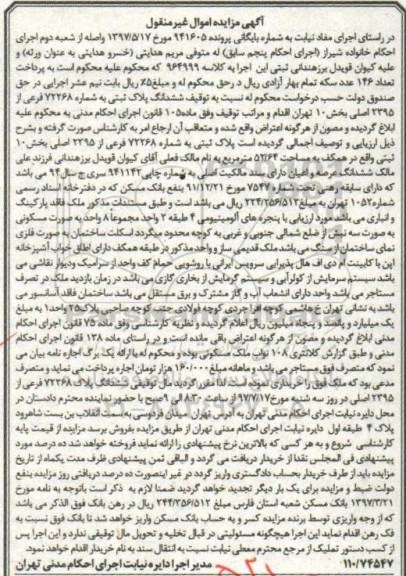 آگهی مزایده اموال غیرمنقول
در راستای اجرای مفاد نیابت به شماره بایگانی پرونده ۹۴۱۶۰۵ مورخ ۱۳۹۷/۵/۱۷ واصله از شعبه دوم اجرای
احکام خانواده شیراز (اجرای احکام پنجم سابق) له متوفی مریم هدایتی (خسرو هدایتی به عنوان ورثه) و
علیه کیوان قویدل برزهندانی ثبتی این اجرا به کلاسه ۹۶۴۹۹۹ که محکوم علیه محکوم است به پرداخت
تعداد ۱۴۶ عدد سکه تمام بهار آزادی ریال در حق محکوم له و مبلغ ۵٪ ریال بابت نیم عشر اجرایی در حق
صندوق دولت حسب درخواست محکوم له نسبت به توقیف ششدانگ پلاک ثبتی به شماره ۷۲۲۶۸ فرعی از
۲۳۹۵ اصلی بخش ۱۰ تهران اقدام و مراتب توقیف وفق ماده ۱۰۵ قانون اجرای احکام مدنی به محکوم علیه
ابلاغ گردیده و مصون از هرگونه اعتراض واقع شده و متعاقب آن ارجاع امر به کارشناس صورت گرفته و بشرح
ذیل ارزیابی و توصیف اجمالی گردیده است پلاک ثبتی به شماره ۷۲۲۶۸ فرعی از ۲۳۹۵ اصلی بخش ۱۰
ثبتی واقع در همکف به مساحت ۵۲/۶۴ مترمربع به نام مالک فعلی آقای کیوان قویدل برزهندانی فرزند علی
مالک ششدانگ عرصه و اعیان دارای سند مالکیت اصلی به شماره چاپی ۹۴۱۱۴۲ سری ج سال ۹۴ می باشد
که دارای سابقه رهنی تحت شماره ۷۵۴۷ مورخ ۹۱/۱۲/۲۱ بنفع بانک مسکن که در دفترخانه اسناد رسمی
شماره ۱۰۵۲ تهران به مبلغ ۲۲۴/۲۵۶/۵۱۲ ریال می باشد است و طبق مستندات مذکور ملک فاقد پارکینگ
و انباری می باشد مورد ارزیابی با پنجره های آلومینیومی ۴ طبقه ۲ واحد مجموعا ۸ واحد به صورت مسکونی
به صورت سه نبش از ضلع شمالی جنوبی و غربی به کوچه محدود میگردد اسکلت ساختمان به صورت فلزی
نمای ساختمان از سنگ می باشد ملک قدیمی ساز و واحد مذکور در طبقه همکف دارای اطاق خواب آشپزخانه
اپن با کابینت ام دی اف هال پذیرایی سرویس ایرانی با روشویی حمام کف واحد از سرامیک و دیوار نقاشی می
باشد سیستم سرمایش از کولر آبی و سیستم گرمایش از بخاری گازی می باشد در زمان بازدید ملک در تصرف
مستاجر می باشد واحد دارای انشعاب آب و گاز مشترک و برق مستقل می باشد ساختمان فاقد آسانسور می
باشد به نشانی تهران
یک میلیارد و پانصد و پنجاه میلیون ریال اعلام گردیده و نظریه کارشناسی وفق ماده ۷۵ قانون اجرای احکام
مدنی ابلاغ گردیده و مصون از هرگونه اعتراض باقی مانده است و در راستای ماده ۱۳۸ قانون اجرای احکام
مدنی و طبق گزارش کلانتری ۱۰۸ نواب ملک مسکونی بوده و محکوم له با ارائه یک برگ اجاره نامه بیان می
نمود که متصرف فوق مستاجر می باشد و ماهانه مبلغ ۱۶۰/۰۰۰ هزار تومان اجاره پرداخت می نماید و متصرف
مدعی بود که ملک فوق را خریداری نموده است لذا مقرر گردید مال توقیفی ششدانگ پلاک ۷۲۲۶۸ فرعی از
۲۳۹۵ اصلی در روز سه شنبه مورخ ۹۷/۷/۱۷ ساعت ۸:۳۰ الی ۹ صبح با حضور نماینده محترم دادستان در
محل دایره نیابت اجرای احکام مدنی تهران به آدرس تهران میدان فردوسی به سمت انقلاب بن بست شاهرود
پلاک ۴ طبقه اول دایره نیابت اجرای احکام مدنی تهران از طریق مزایده بفروش برسد مزایده از قیمت پایه
کارشناسی شروع و به هر کسی که بالاترین نرخ پیشنهادی را ارائه نماید فروخته خواهد شد ده درصد مورد
پیشنهادی فی المجلس نقدا از خریدار دریافت می گردد و الباقی ثمن پیشنهادی ظرف مدت یکماه از تاریخ
مزایده باید از طرف خریدار بحساب دادگستری واریز گردد در غیر اینصورت ده درصد دریافتی روز مزایده بنفع
دولت ضبط و مزایده برای یک بار دیگر تجدید خواهد گردید ضمنا لازم به ذکر است باتوجه به نامه مورخ
۱۳۹۷/۳/۲۱ بانک مسکن شعبه استان فارس مبلغ ۲۴۴/۳۵۶/۵۱۲ ریال در رهن بانک فوق الذکر می باشد
که از وجه واریزی توسط برنده مزایده کسر و به حساب بانک مسکن واریز خواهد شد تا بانک فوق نسبت به
فک رهن اقدام نماید این اجرا هیچگونه مسئولیتی در قبال تخلیه و تحویل مال توقیفی ندارد و این اجرا پس
از کسب دستور تملیک از مرجع محترم معطی نیابت نسبت به انتقال سند به نام خریدار اقدام خواهد نمود.
۱۱۰/۷۴۵۴۷ مدیر اجرا دایره نیابت اجرای احکام مدنی تهران